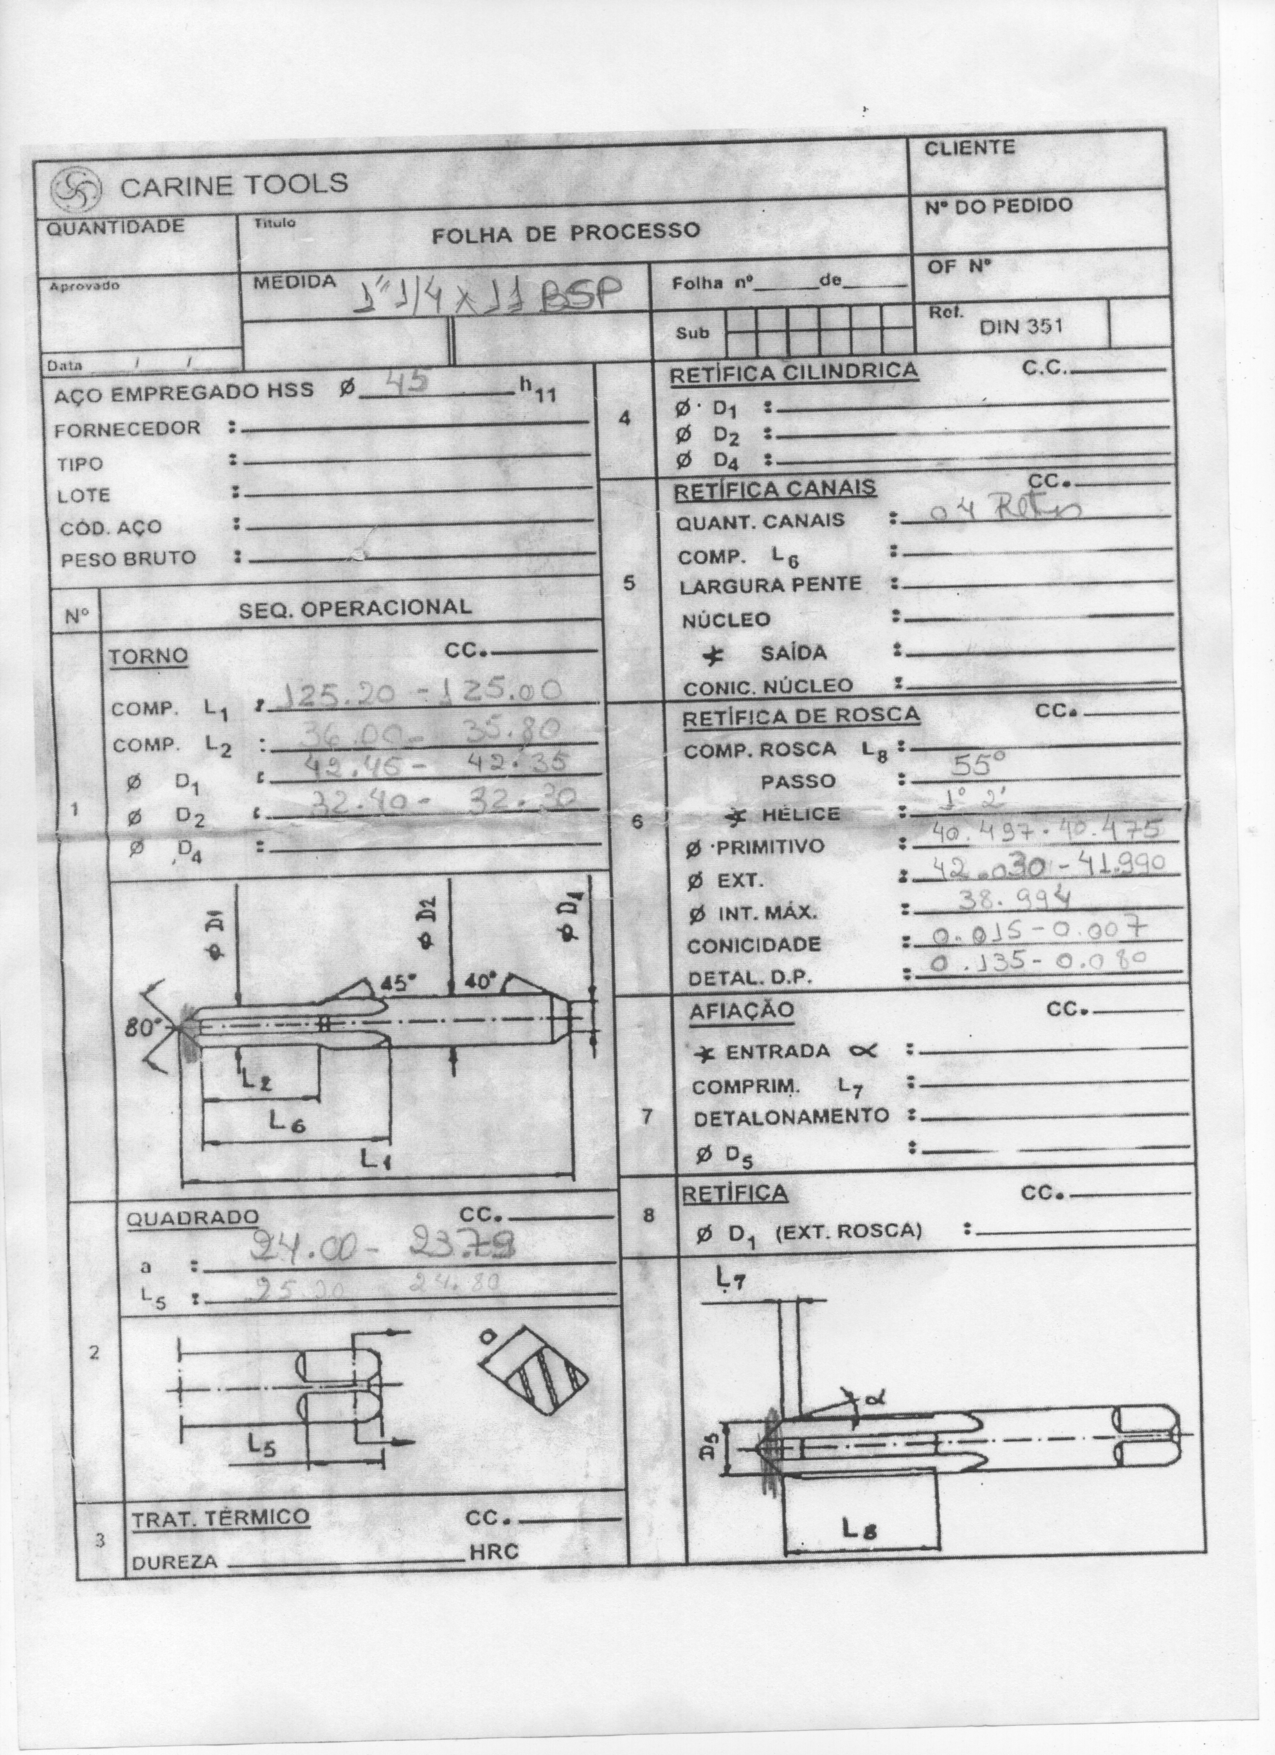 CARINE TOOLS
CLIENTE
QUANTIDADE
Título
FOLHA DE PROCESSO
Nº DO PEDIDO
Aprovado
MEDIDA 1" 1/4 x 11 BSP
Folha nº de
OF Nº
Sub
Ref. DIN 351
Data / /
AÇO EMPREGADO HSS Ø 45 h11
FORNECEDOR :
TIPO :
LOTE :
CÓD. AÇO :
PESO BRUTO :
Nº SEQ. OPERACIONAL
1
TORNO CC.
COMP. L1 : 125.20 - 125.00
COMP. L2 : 36.00 - 35.80
Ø D1 : 42.45 - 42.35
Ø D2 : 32.40 - 32.30
Ø D4 :
Ø D1
Ø D2
Ø D4
80°
45°
40°
L2
L6
L1
2
QUADRADO CC.
a : 24.00 - 23.79
L5 : 25.20 24.80
L5
a
3
TRAT. TÉRMICO CC.
DUREZA HRC
4
RETÍFICA CILINDRICA C.C.
Ø D1 :
Ø D2 :
Ø D4 :
5
RETÍFICA CANAIS CC.
QUANT. CANAIS : 04 Retos
COMP. L6 :
LARGURA PENTE :
NÚCLEO :
SAÍDA :
CONIC. NÚCLEO :
6
RETÍFICA DE ROSCA CC.
COMP. ROSCA L8 :
PASSO : 55°
HÉLICE : 1° 2'
Ø PRIMITIVO : 40.497 - 40.475
Ø EXT. : 42.030 - 41.990
Ø INT. MÁX. : 38.994
CONICIDADE : 0.015 - 0.007
DETAL. D.P. : 0.135 - 0.080
7
AFIAÇÃO CC.
ENTRADA α :
COMPRIM. L7 :
DETALONAMENTO :
Ø D5 :
8
RETÍFICA CC.
Ø D1 (EXT. ROSCA) :
L7
α
D5
L8